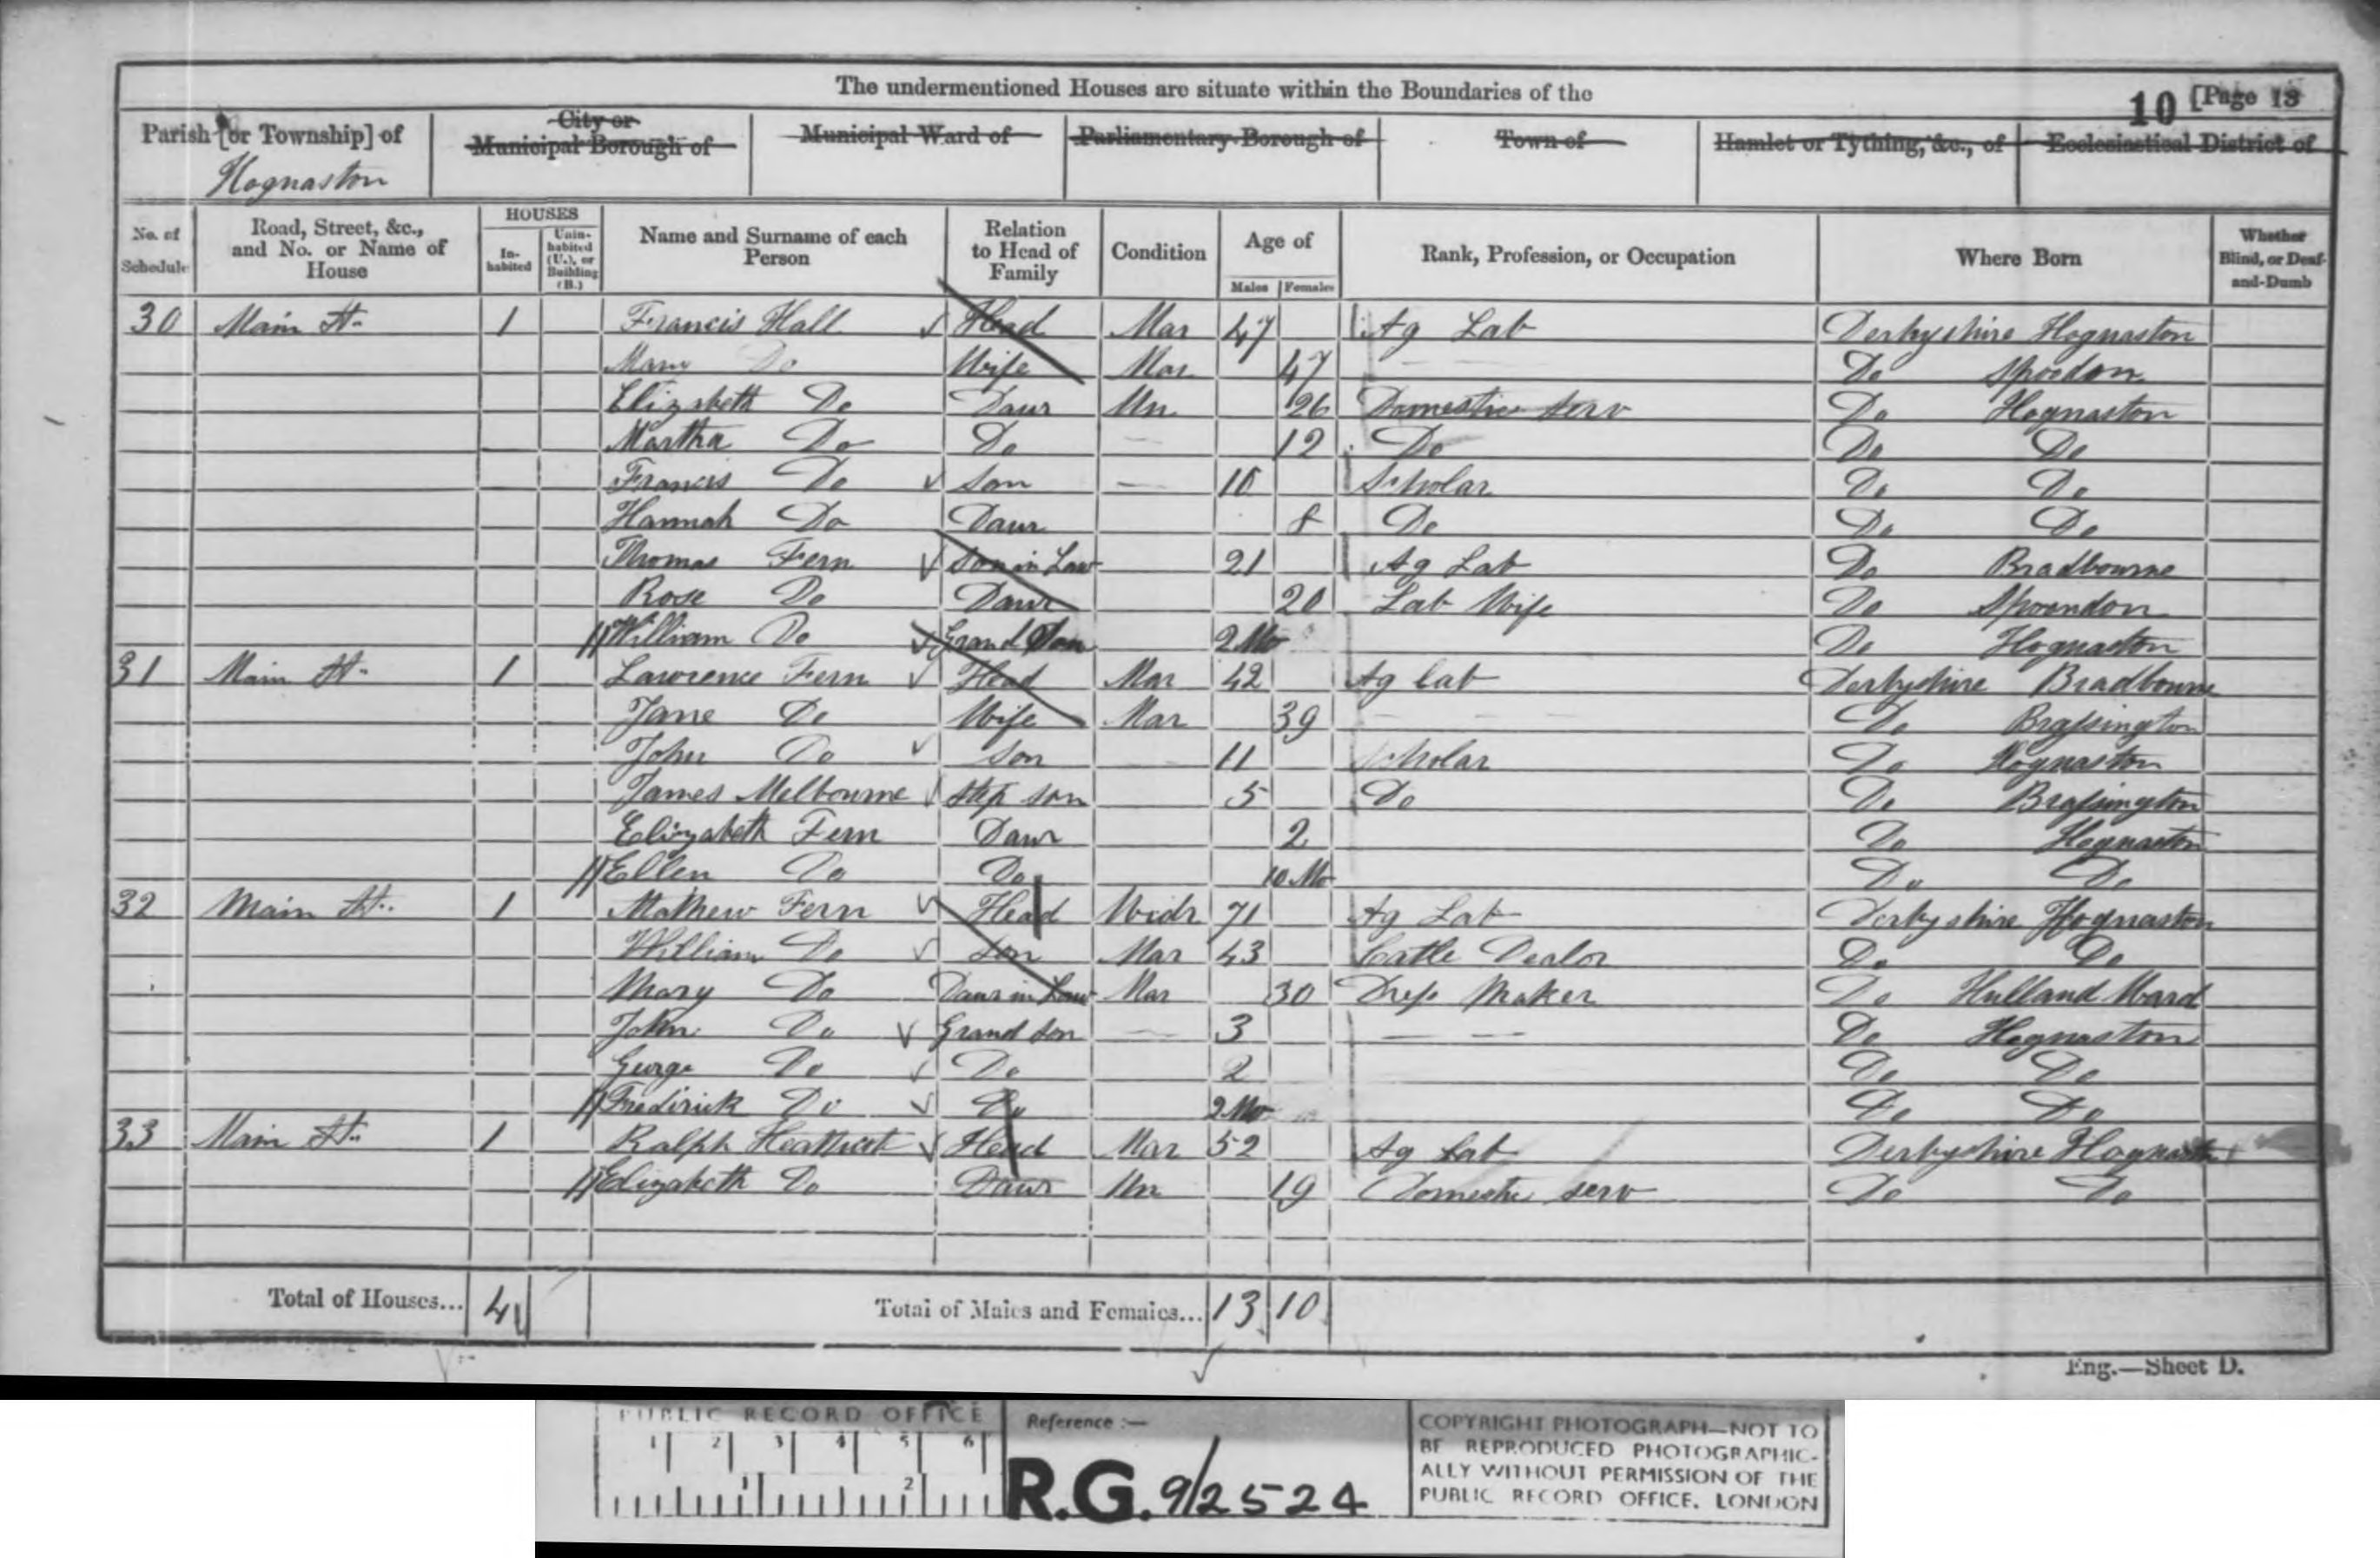 The undermentioned Houses are situate within the Boundaries of the
10 [Page 13
Parish [or Township] of
City or Municipal Borough of
Municipal Ward of
Parliamentary Borough of
Town of
Hamlet or Tything, &c., of
Ecclesiastical District of
Hognaston
No. of Schedule
Road, Street, &c., and No. or Name of House
HOUSES
In-habited
Unin-habited (U.), or Building (B.)
Name and Surname of each Person
Relation to Head of Family
Condition
Age of
Males Females
Rank, Profession, or Occupation
Where Born
Whether Blind, or Deaf-and-Dumb
30 Main St. 1 Francis Hall Head Mar 47 Ag Lab Derbyshire Hognaston
Mary Do Wife Mar 47 Do Spoodon
Elizabeth Do Daur Un 26 Domestic Serv Do Hognaston
Martha Do Do 12 Do Do Do
Francis Do Son 10 Scholar Do Do
Hannah Do Daur 8 Do Do Do
Thomas Fern Son in Law 21 Ag Lab Do Bradbourne
Rose Do Daur 20 Lab Wife Do Spoondon
William Do Grand Son 2 Mo Do Hognaston
31 Main St. 1 Lawrence Fern Head Mar 42 Ag Lab Derbyshire Bradbourne
Jane Do Wife Mar 39 Do Brassington
John Do Son 11 Scholar Do Hognaston
James Melbourne Step Son 5 Do Do Brassington
Elizabeth Fern Daur 2 Do Hognaston
Ellen Do Do 10 Mo Do Do
32 Main St. 1 Mathew Fern Head Widr 71 Ag Lab Derbyshire Hognaston
William Do Son Mar 43 Catle Dealor Do Do
Mary Do Daur in Law Mar 30 Dress Maker Do Hulland Ward
John Do Grand Son 3 Do Hognaston
George Do Do 2 Do Do
Fredirick Do Do 2 Mo Do Do
33 Main St. 1 Ralph Heathcot Head Mar 52 Ag Lab Derbyshire Hognaston
Elizabeth Do Daur Un 19 Domestic Serv Do Do
Total of Houses... 4 Total of Males and Females... 13 10
Eng.—Sheet D.
PUBLIC RECORD OFFICE
1 2 3 4 5 6
1 2
Reference :—
R.G. 9/2524
COPYRIGHT PHOTOGRAPH—NOT TO
BE REPRODUCED PHOTOGRAPHIC-
ALLY WITHOUT PERMISSION OF THE
PUBLIC RECORD OFFICE, LONDON